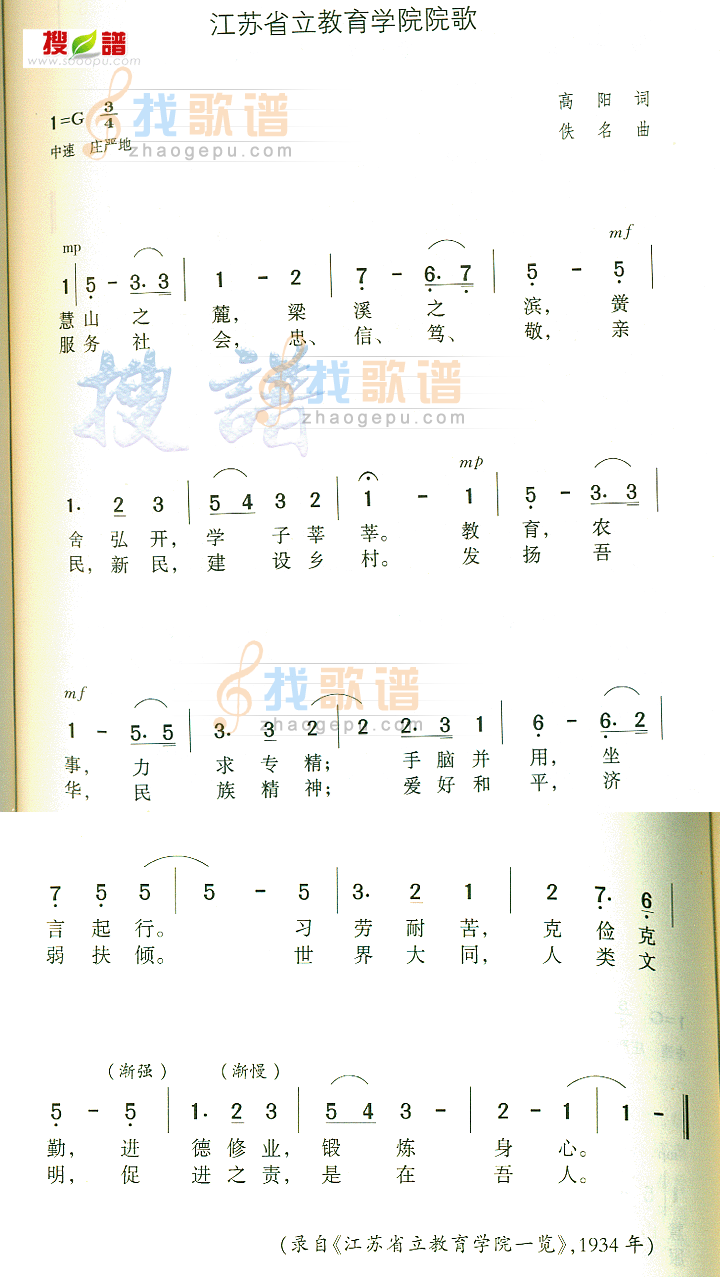 江苏省立教育学院院歌
搜 譜
www.sooopu.com
找歌谱
zhaogepu.com
1=G 3/4
高 阳 词
中速 庄严地
佚 名 曲
mp mf
1 | 5 - 3. 3 | 1 - 2 | 7 - 6. 7 | 5 - 5 |
慧 山 之 麓, 梁 溪 之 滨, 黉
服 务 社 会, 忠、 信、 笃、 敬, 亲
搜 譜
找歌谱
zhaogepu.com
mp
1. 2 3 | 5 4 3 2 | 1 - 1 | 5 - 3. 3 |
舍 弘 开, 学 子 莘 莘。 教 育, 农
民, 新 民, 建 设 乡 村。 发 扬 吾
找歌谱
zhaogepu.com
mf
1 - 5. 5 | 3. 3 2 | 2 2. 3 1 | 6 - 6. 2 |
事, 力 求 专 精; 手 脑 并 用, 坐
华, 民 族 精 神; 爱 好 和 平, 济
7 5 5 | 5 - 5 | 3. 2 1 | 2 7. 6 |
言 起 行。 习 劳 耐 苦, 克 俭 克
弱 扶 倾。 世 界 大 同, 人 类 文
(渐强) (渐慢)
5 - 5 | 1. 2 3 | 5 4 3 - | 2 - 1 | 1 - ‖
勤, 进 德 修 业, 锻 炼 身 心。
明, 促 进 之 责, 是 在 吾 人。
(录自《江苏省立教育学院一览》,1934年)